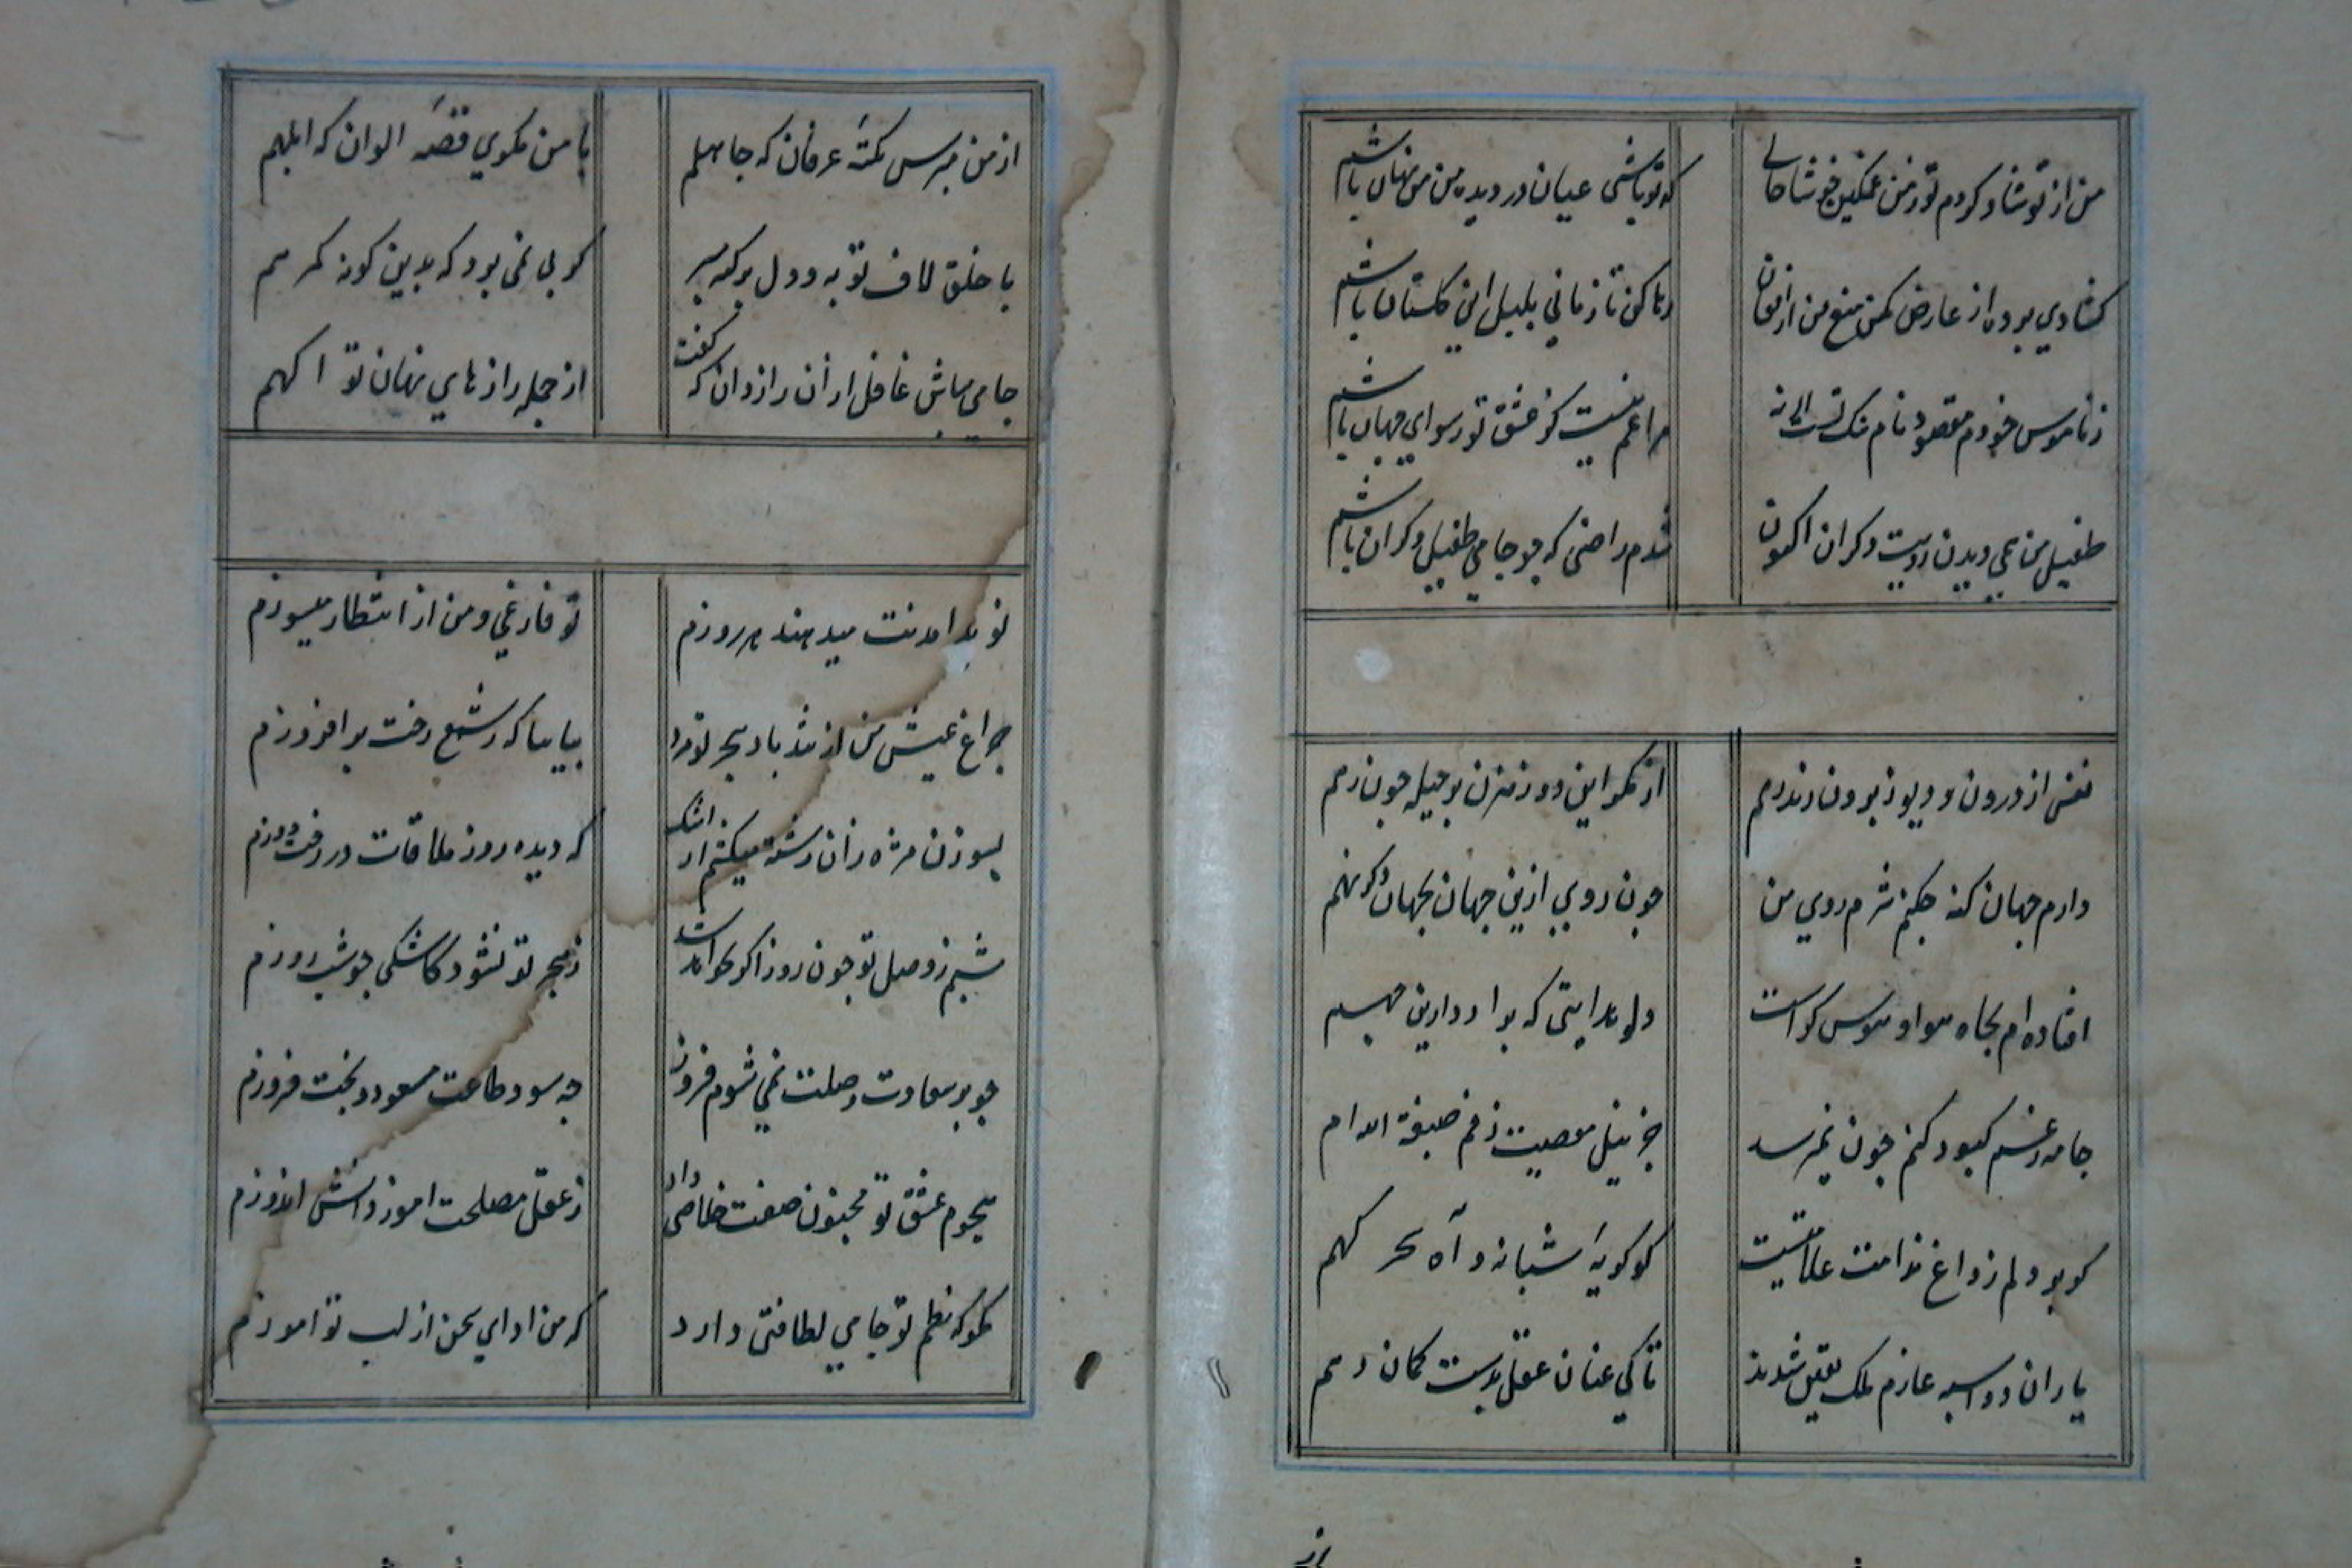 من از تو شاد کردم تو ز من غمکین خوشا حالی
که تو باشی عیان در دیده من من نهان باشم
کشادی پرده از عارض مکن منع من از افغان
رها کن تا زمانی بلبل این کلستان باشم
ز ناموس خودم مقصود نام ننک تست ار نه
مرا غم نیست کز عشق تو رسوای جهان باشم
طفیل من همی دیدند رویت دکران اکنون
شدم راضی که چو جامی طفیل دکران باشم
نفس از درون و دیو ز بیرون زند رهم
از مکر این دو رهزن پر حیله چون رهم
دارم جهان کنه چکنم شرم روی من
چون روی ازین جهان بجهان دکر نهم
افتاده ام بجاه هوا و هوس کجاست
دلو هدایتی که برارد ازین چهم
جامه ز غم کبود کنم چون نمیرسد
جز نیل معصیت ز خم صبغة اللهم
کو بر دلم ز داغ ندامت علامتیست
کو کریه شبانه و آه سحر کهم
یاران دو اسبه عازم ملک یقین شدند
تا کی عنان عقل بدست کمان دهم
از من مپرس نکتهٔ عرفان که جاهلم
با من مکوی قصهٔ الوان که ابلهم
با خلق لاف توبه و دل بر کنه مصر
کو پی نمی برد که بدین کونه کمرهم
جامی مباش غافل از آن رازدان که کفت
از جمله رازهای نهان تو اکهم
نوید امدنت میدهند هر روزم
تو فارغی و من از انتظار میسوزم
چراغ عیش من از تند باد هجر تو مرد
بیا بیا که ز شمع رخت بر افروزم
بسوزن مژه زان رشته میکشم از اشک
که دیده روز ملاقات در رخت دوزم
شبم ز وصل تو چون روز اکر نخواهد شد
ز هجر تو نشود کاشکی چو شب روزم
چو بر سعادت وصلت نمی شوم فیروز
چه سود طاعت مسعود و بخت فیروزم
هجوم عشق تو مجنون صفت خلاصی داد
ز عقل مصلحت اموز دانش اندوزم
مکو که نظم تو جامی لطافتی دارد
که من ادای سخن از لب تو اموزم